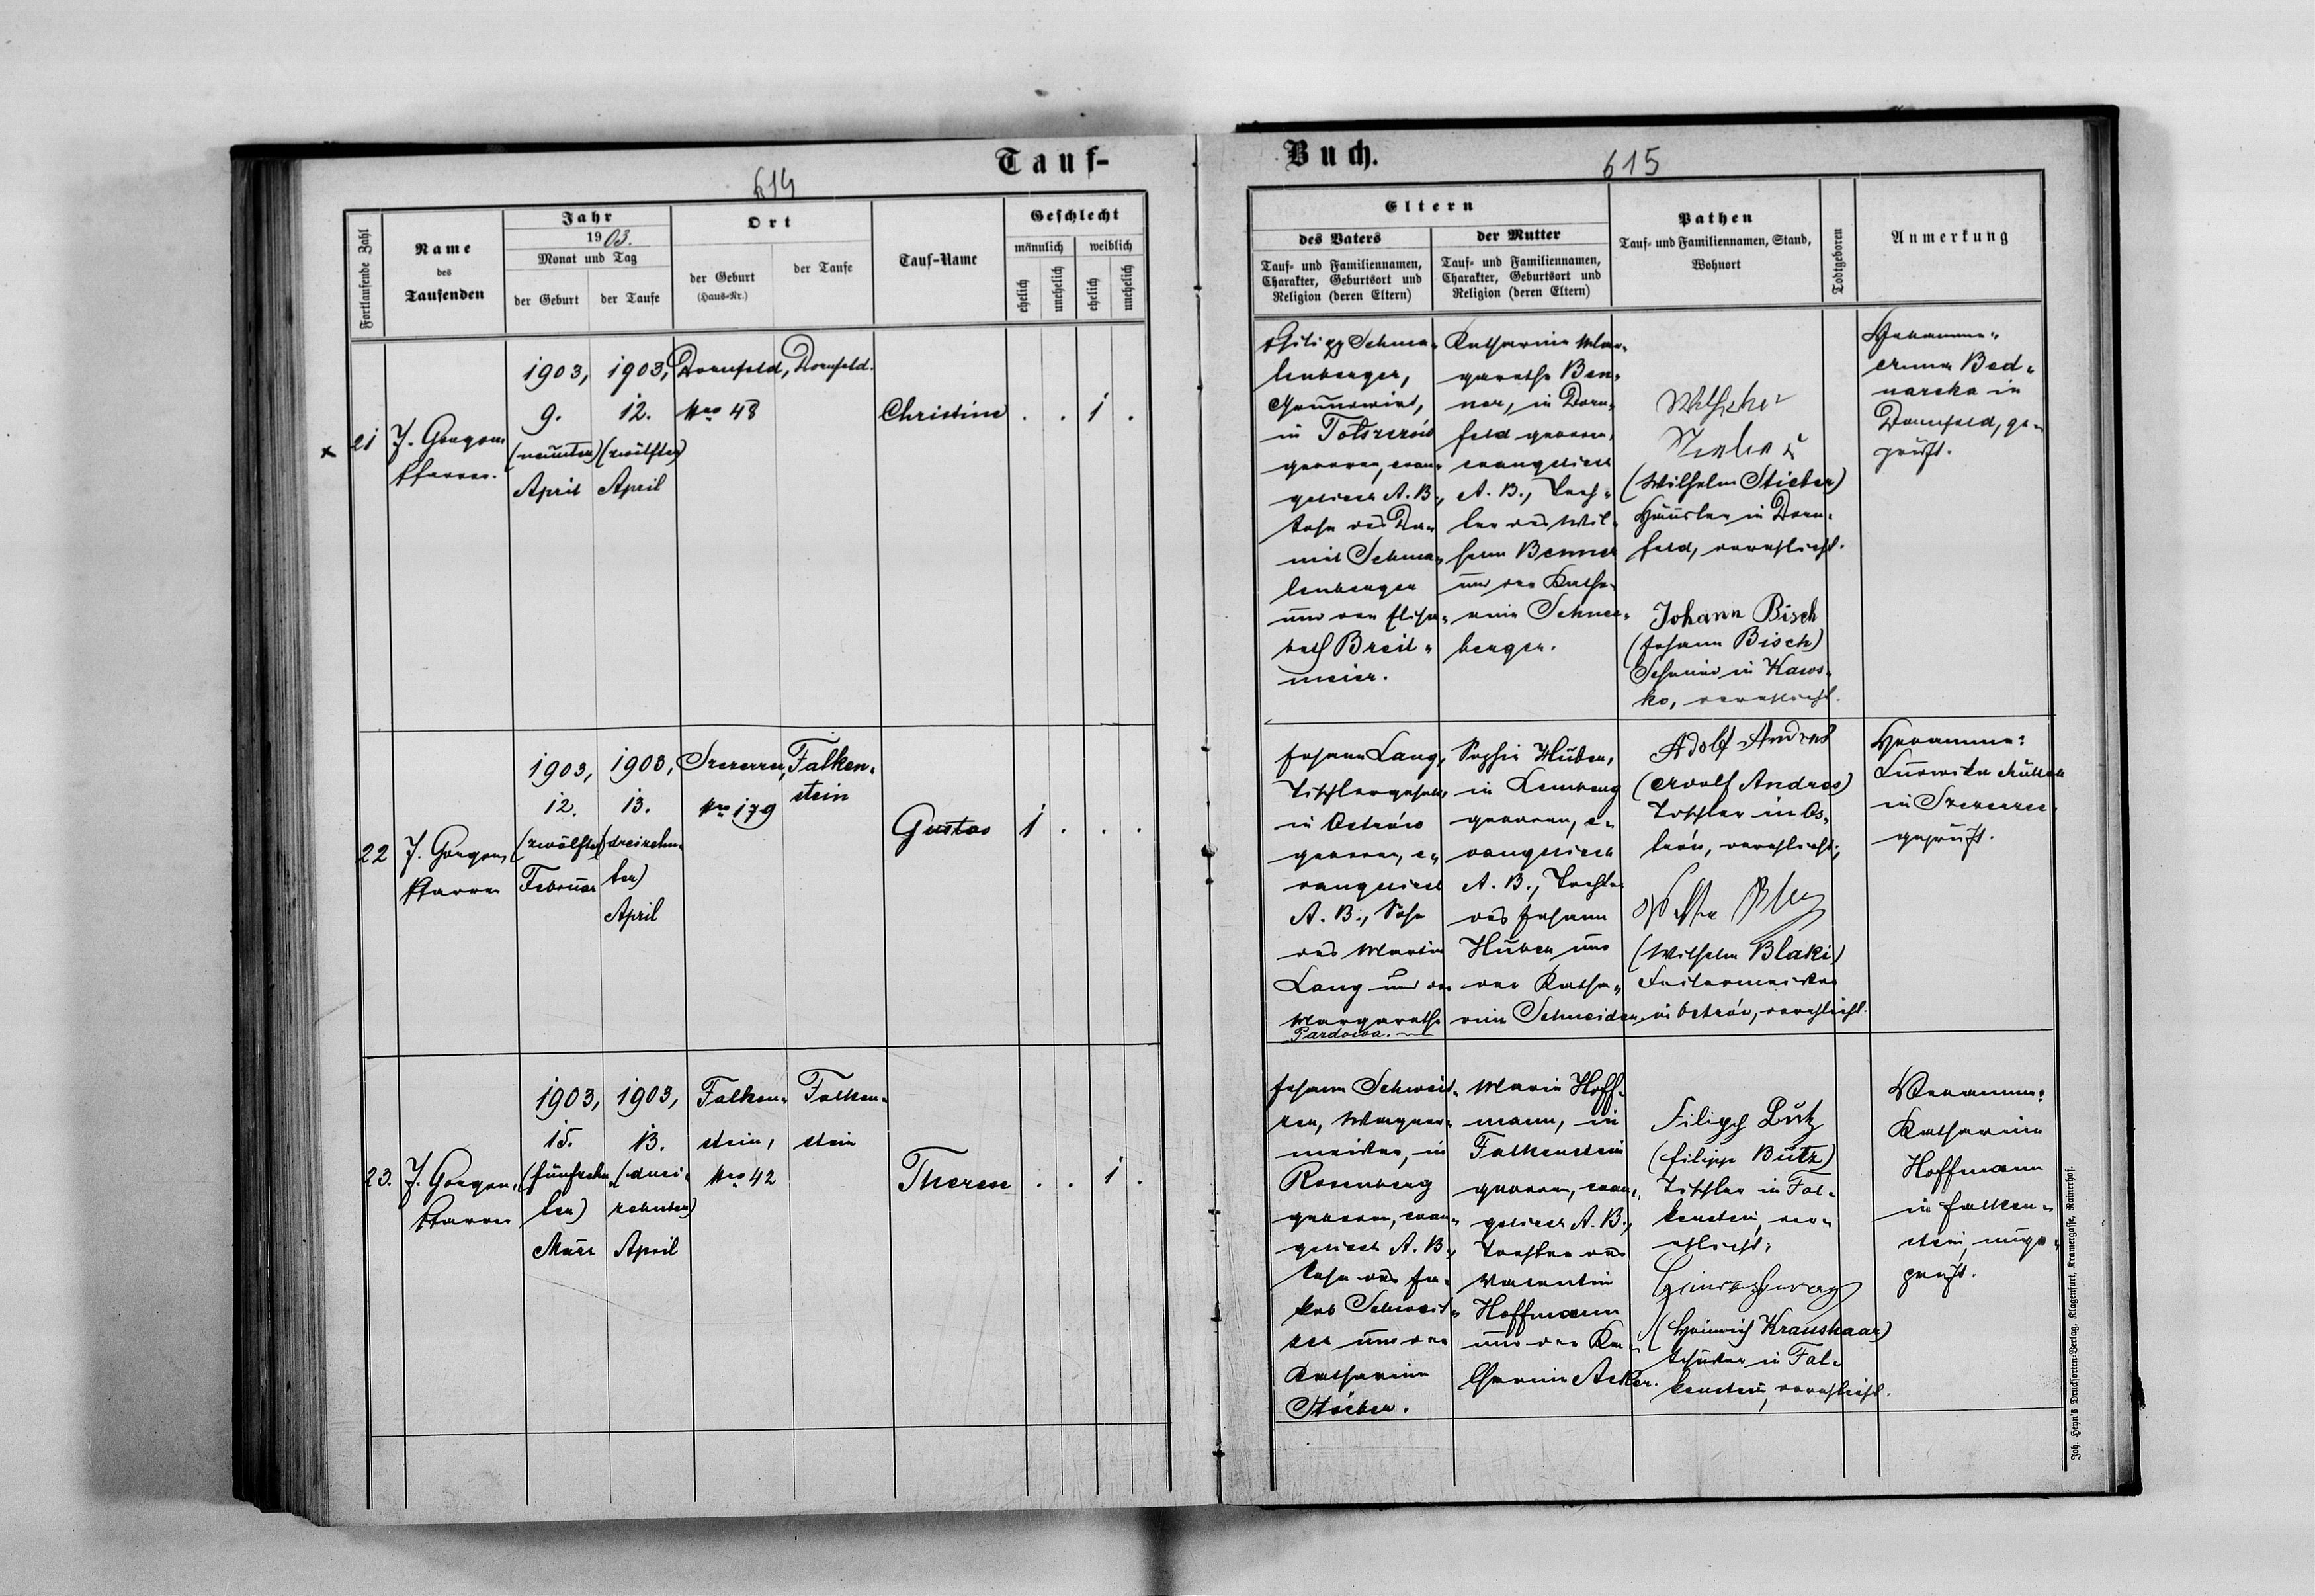 Tauf-
614
Fortlaufende Zahl
Name
des
Taufenden
Jahr
1903.
Monat und Tag
der Geburt
der Taufe
Ort
der Geburt
(Haus-Nr.)
der Taufe
Tauf-Name
Geschlecht
männlich
weiblich
ehelich
unehelich
ehelich
unehelich
x 21
Pfarrer.
1903,
9.
(neunten)
April
1903,
12.
(zwölften)
April
Dornfeld,
Nro 48
Dornfeld.
Christine
. . 1 .
22
Pfarrer
1903,
12.
(zwölften)
Februar
1903,
13.
(dreizehn-
ten)
April
Szczerzec,
Nro 179
Falken-
stein
Gustav
1 . . .
23.
Pfarrer
1903,
15.
(fünfzehn-
ten)
März
1903,
13.
(drei-
zehnten)
April
Falken-
stein,
Nro 42
Falken-
stein
Therese
. . 1 .
Buch.
615
Eltern
des Vaters
Tauf- und Familiennamen,
Charakter, Geburtsort und
Religion (deren Eltern)
der Mutter
Tauf- und Familiennamen,
Charakter, Geburtsort und
Religion (deren Eltern)
Pathen
Tauf- und Familiennamen, Stand,
Wohnort
Todtgeboren
Anmerkung
Philipp Schma-
lenberger,
Grundwirt,
in Tolszczów
geboren, evan-
gelisch A. B.,
Sohn des Da-
niel Schma-
lenberger
und der Elisa-
beth Breit-
meier.
Katharina Mar-
garetha Ben-
ner, in Dorn-
feld geboren,
evangelisch
A. B., Toch-
ter des Wil-
helm Benner
und der Katha-
rina Schnee-
berger.
(Wilhelm Stieber)
Häusler in Dorn-
feld, verehlicht.
Johann Bisch
(Johann Bisch)
Schmied in Kaws-
ko, verehlicht.
Hebamme:
Anna Bed-
narska in
Dornfeld, ge-
prüft.
Johann Lang,
Tischlergeselle,
in Ostrów
geboren, e-
vangelisch
A. B., Sohn
des Martin
Lang und der
Margaretha
Pardowa.
Sophie Huber,
in Lemberg
geboren, e-
vangelisch
A. B., Tochter
des Johann
Huber und
der Katha-
rina Schneider.
Adolf Andres
(Adolf Andres)
Tischler in Os-
trów, verehlicht;
(Wilhelm Blaki)
in Ostrów, verehlicht.
Hebamme:
Ludwika Müller
in Szczerzec,
geprüft.
Johann Schweit-
zer, Wagner-
meister, in
Rosenberg
geboren, evan-
gelisch A. B.,
Sohn des Ja-
kob Schweit-
zer und der
Katharina
Stöcber.
Maria Hoff-
mann, in
Falkenstein
geboren, evan-
gelisch A. B.,
Tochter des
Valentin
Hoffmann
und der Ka-
tharina Acker.
Filipp Butz
(Filipp Butz)
Tischler in Fal-
kenstein, ver-
ehlicht;
(Heinrich Kraushaar)
Schuster in Fal-
kenstein, verehlicht.
Hebamme:
Katharina
Hoffmann
in Falken-
stein, unge-
prüft.
Joh. Heyn's Drucksorten-Verlag, Klagenfurt, Kramergasse, Rainerhof.